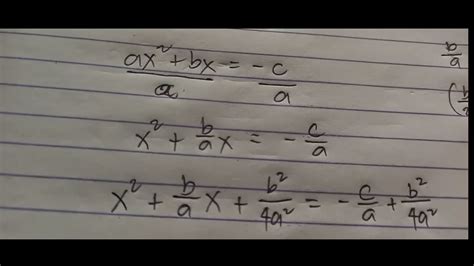 (ax² + bx)/a = -c/a
b/a
x² + b/a x = -c/a
x² + b/a x + b²/4a² = -c/a + b²/4a²